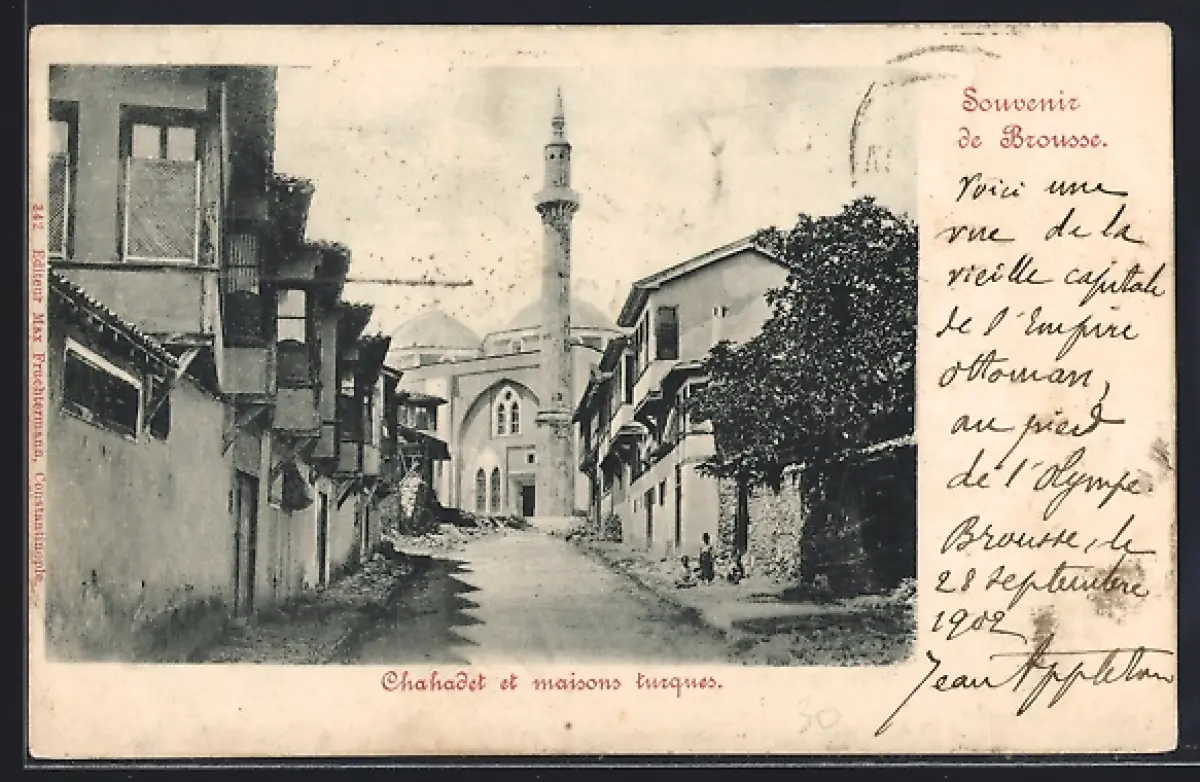 Souvenir
de Brousse.
Voici une
vue de la
vieille capitale
de l'Empire
ottoman,
au pied
de l'Olympe.
Brousse, le
28 septembre
1902
Jean Appleton
Chahadet et maisons turques.
342 Editeur Max Fruchtermann, Constantinople.
30